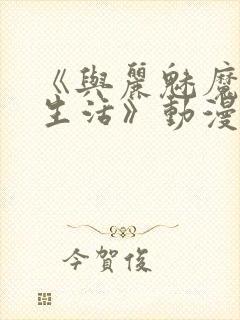 《與麗魅魔
生活》動漫
今賀俊